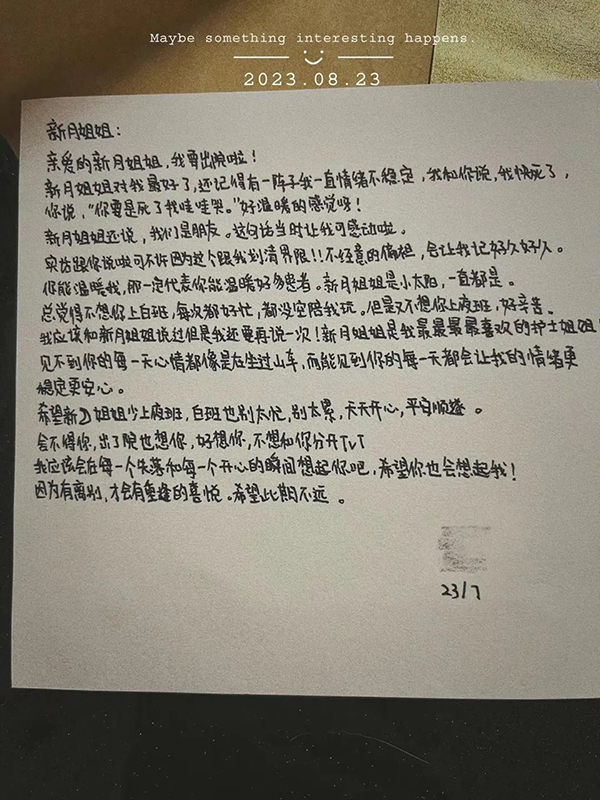 Maybe something interesting happens.
2023.08.23
新月姐姐：
亲爱的新月姐姐，我要出院啦！
新月姐姐对我最好了，还记得有一阵子我一直情绪不稳定，我和你说，我快死了，
你说，“你要是死了我哇哇哭。”好温暖的感觉呀！
新月姐姐还说，我们是朋友。这句话当时让我可感动啦。
实话跟你说啦可不许因为这个跟我划清界限！！不经意的偏袒，会让我记好久好久。
你能温暖我，那一定代表你能温暖好多患者。新月姐姐是小太阳，一直都是。
总觉得不想你上白班，每次都好忙，都没空陪我玩。但是又不想你上夜班，好辛苦。
我应该和新月姐姐说过但是我还要再说一次！新月姐姐是我最最最最喜欢的护士姐姐！
见不到你的每一天心情都像是在坐过山车，而能见到你的每一天都会让我的情绪更
稳定更安心。
希望新月姐姐少上夜班，白班也别太忙，别太累，天天开心，平安顺遂。
会不得你，出了院也想你，好想你，不想和你分开TvT
我应该会在每一个失落和每一个开心的瞬间想起你吧，希望你也会想起我！
因为有离别，才会有重逢的喜悦。希望此期不远。
23/7